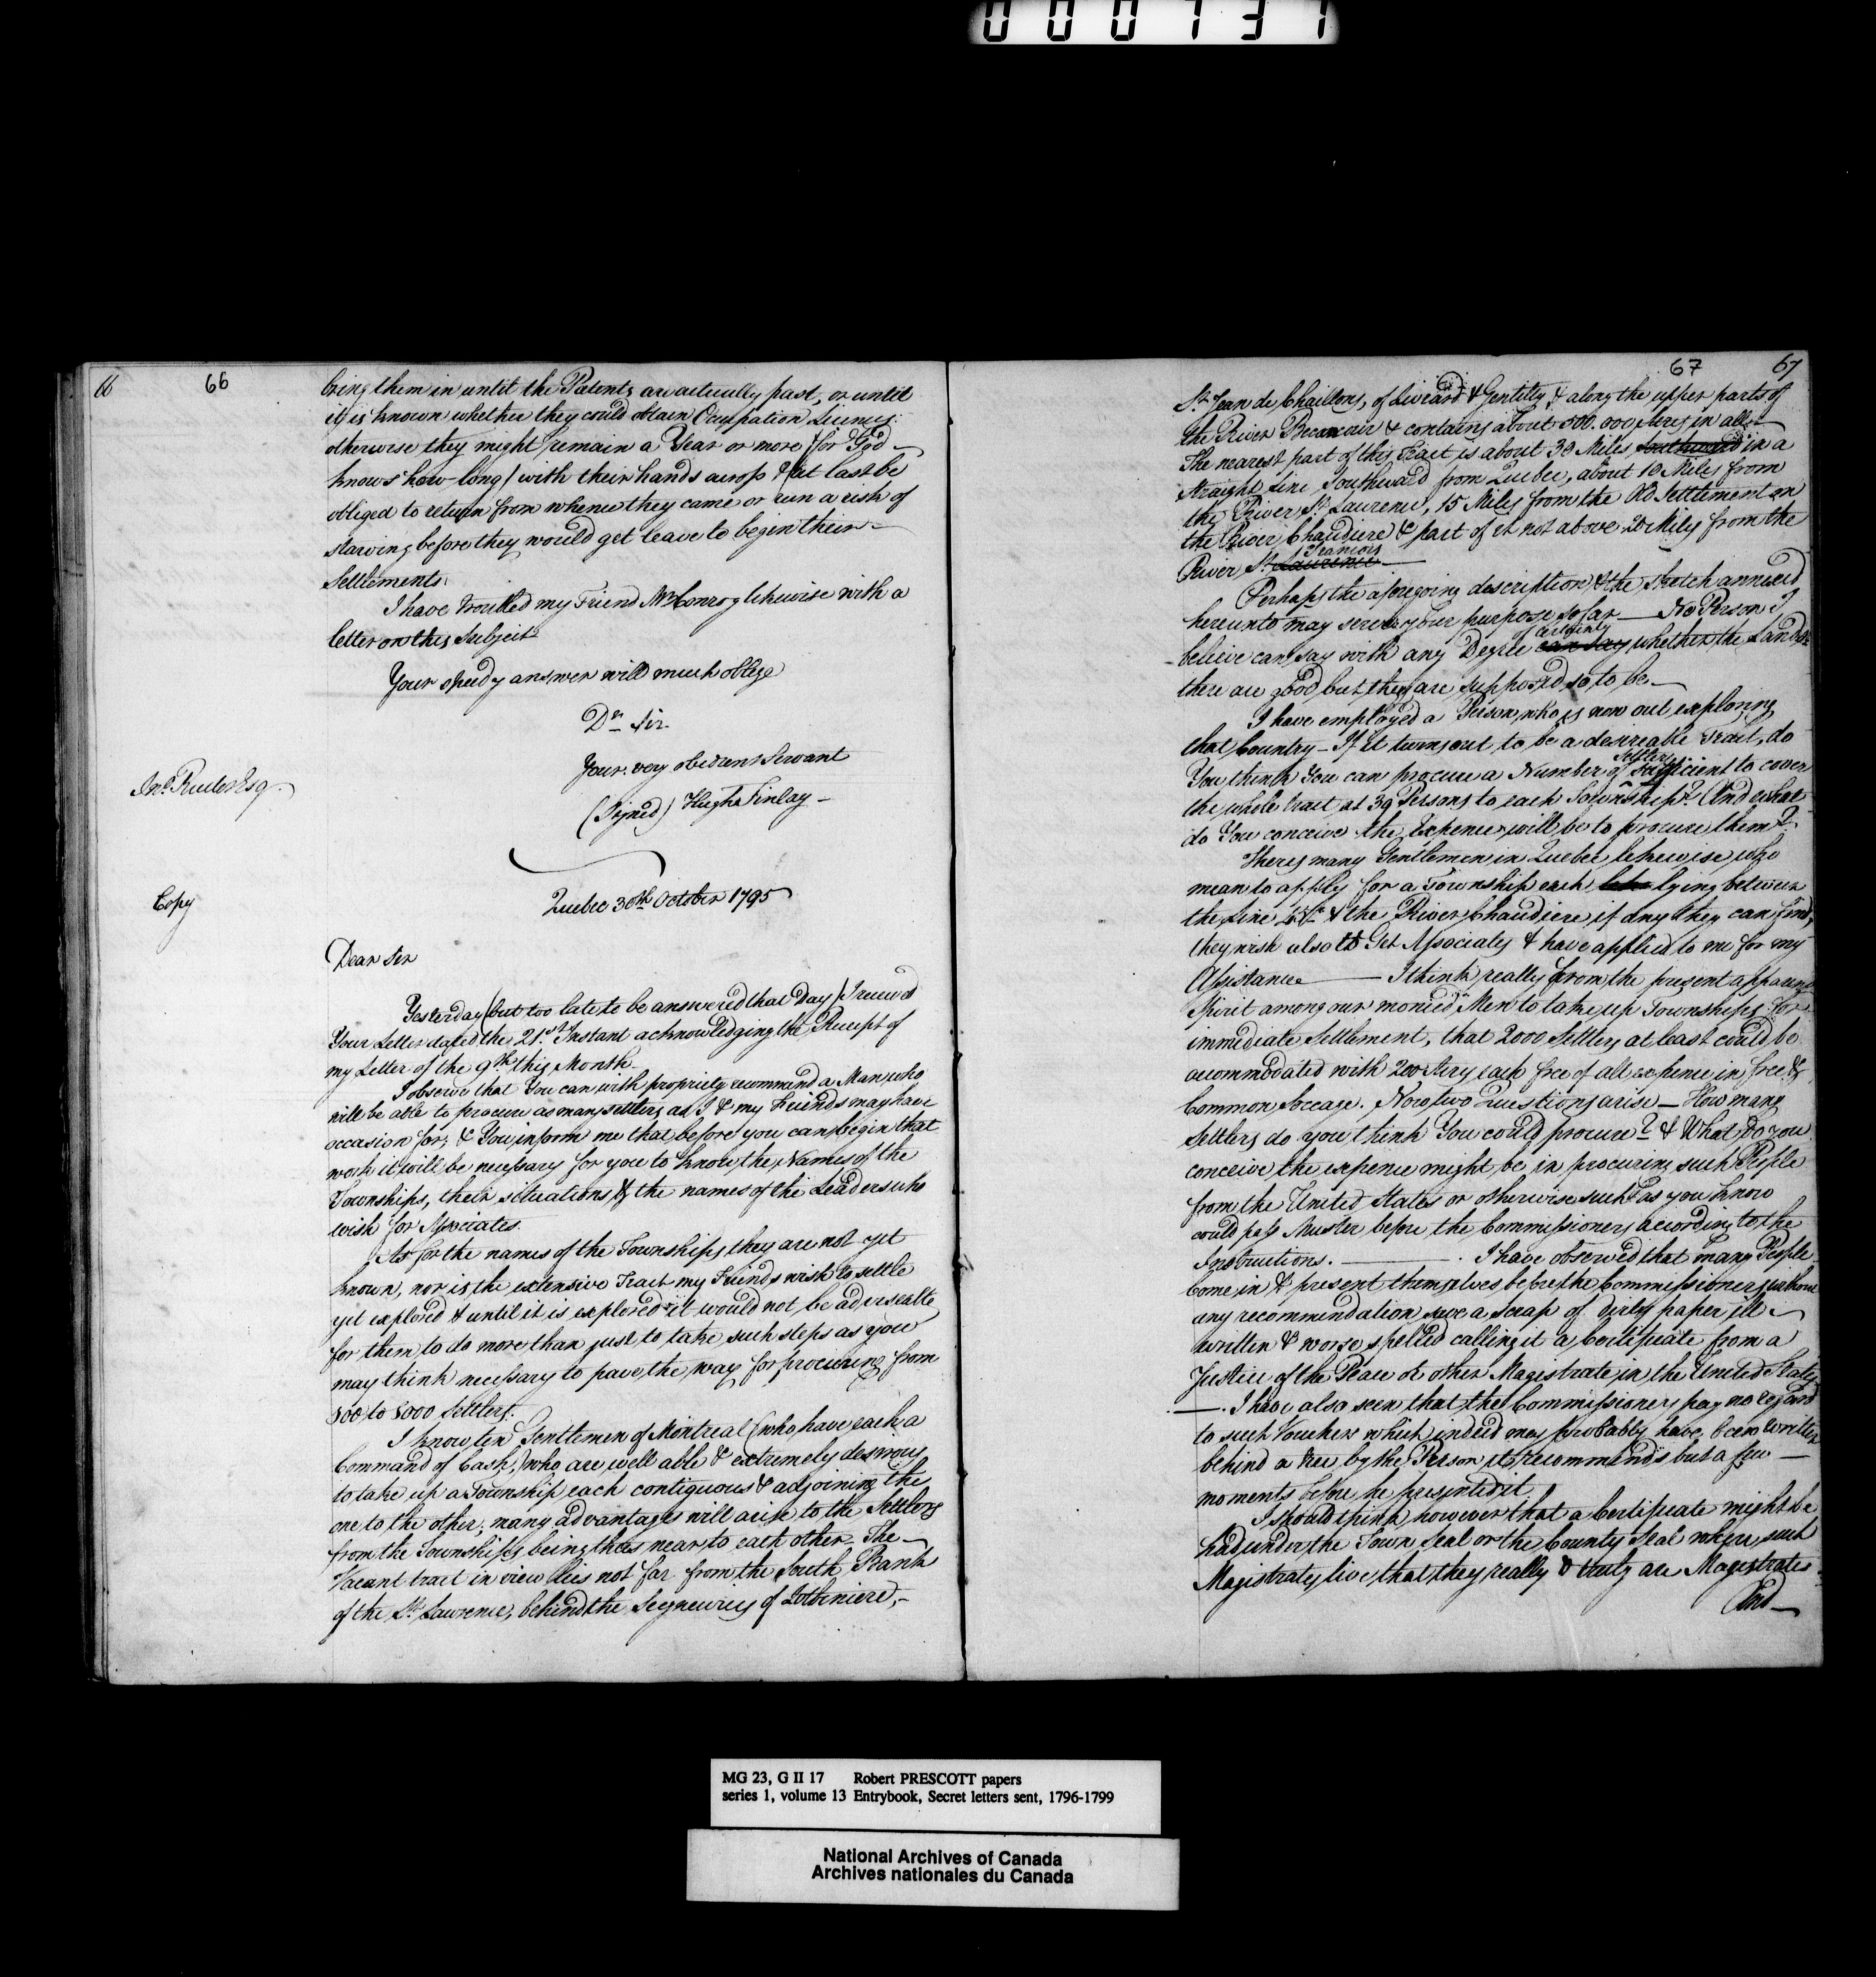 000737
66
66
bring them in until the Patents are actually past, or until
it is known whether they could obtain Occupation Licences:
otherwise they might remain a Year or more (for God
knows how long) with their hands across & at last be
obliged to return from whence they came or run a risk of
starving before they would get leave to begin their
Settlements.
I have troubled my Friend Mr Conroy likewise with a
letter on this Subject
Your speedy answer will much oblige
Dr Sir
Your very obedient Servant
(Signed) Hugh Finlay
Jno. Ruiter Esq.
Copy
Quebec 30th October 1795
Dear Sir
Yesterday (but too late to be answered that Day) I received
Your Letter dated the 21st Instant acknowledging the Receipt of
my Letter of the 9th this Month.
I observe that You can with propriety recommend a Man who
will be able to procure as many settlers as I & my Friends may have
occasion for; & You inform me that before you can begin that
work it will be necessary for you to know the Names of the
Townships, their situations & the names of the Leaders who
wish for Associates.
As for the names of the Townships they are not yet
known, nor is the extensive Tract my Friends wish to settle
yet explored & until it is explored it would not be adviseable
for them to do more than just to take such steps as you
may think necessary to pave the way for procuring from
800 to 1000 Settlers.
I know ten Gentlemen of Montreal (who have each a
Command of Cash,) who are well able & extremely desirous
to take up a Township each contiguous & adjoining the
one to the other; many advantages will arise to the Settlers
from the Townships being thus near to each other. The
Vacant tract in view lies not far from the South Bank
of the St. Lawrence, behind the Seigneuries of Lotbiniere,
67
67
St. Jean de Chaillons, of Livrard & Gentilly & along the upper parts of
the River Becancour & contains about 500.000 Acres in all.
The nearest part of this Tract is about 30 Miles southward in a
straight Line Southward from Quebec, about 10 Miles from
the River St. Laurence, 15 Miles from the Old Settlement on
the River Chaudiere & part of it not above 20 Miles from the
Francois
River St. Laurence
Perhaps the aforegoing description & the sketch annexed
hereunto may serve your purpose so far No Person I
of certainty
believe can say with any Degree can say whether the Lands
there are good but they are supposed so to be.
I have employed a Person, who is now out exploring
that Country - If it turns out to be a desireable Tract, do
Settlers
You think You can procure a Number of sufficient to cover
the whole tract at 39 Persons to each Township? And what
do You conceive the Expence will be to procure them?
Theres many Gentlemen in Quebec likewise who
mean to apply for a Township each lying between
the Line & the River Chaudiere if any they can find,
they wish also to Get Associates & have applied to me for my
Assistance I think really from the present apparent
Spirit among our monied Men to take up Townships for
immediate Settlement, that 2000 Settlers at least could be
accommodated with 200 Acres each free of all expence in free &
Common Soccage. Now two Questions arise - How many
Settlers do you think You could procure? & What do you
conceive the expence might be in procuring such People
from the United States or otherwise such as you know
could pass Muster before the Commissioners according to the
Instructions. I have observed that many People
Come in & present themselves before the Commissioners without
any recommendation save a scrap of dirty paper ill
written & worse spelled calling it a Certificate from a
Justice of the Peace or other Magistrate in the United States
. I have also seen that the Commissioners pay no regard
to such Vouchers which indeed may probably have been written
behind a tree by the Person it recommends but a few
moments before he presented it.
I should think however that a Certificate might be
had under the Town Seal or the County Seal where such
Magistrates live, that they really & truly are Magistrates
And
MG 23, G II 17 Robert PRESCOTT papers
series 1, volume 13 Entrybook, Secret letters sent, 1796-1799
National Archives of Canada
Archives nationales du Canada